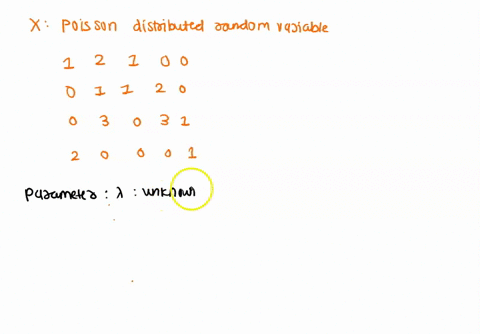 X: Poisson distributed random variable
1 2 1 0 0
0 1 1 2 0
0 3 0 3 1
2 0 0 0 1
Parameter : λ : unknown